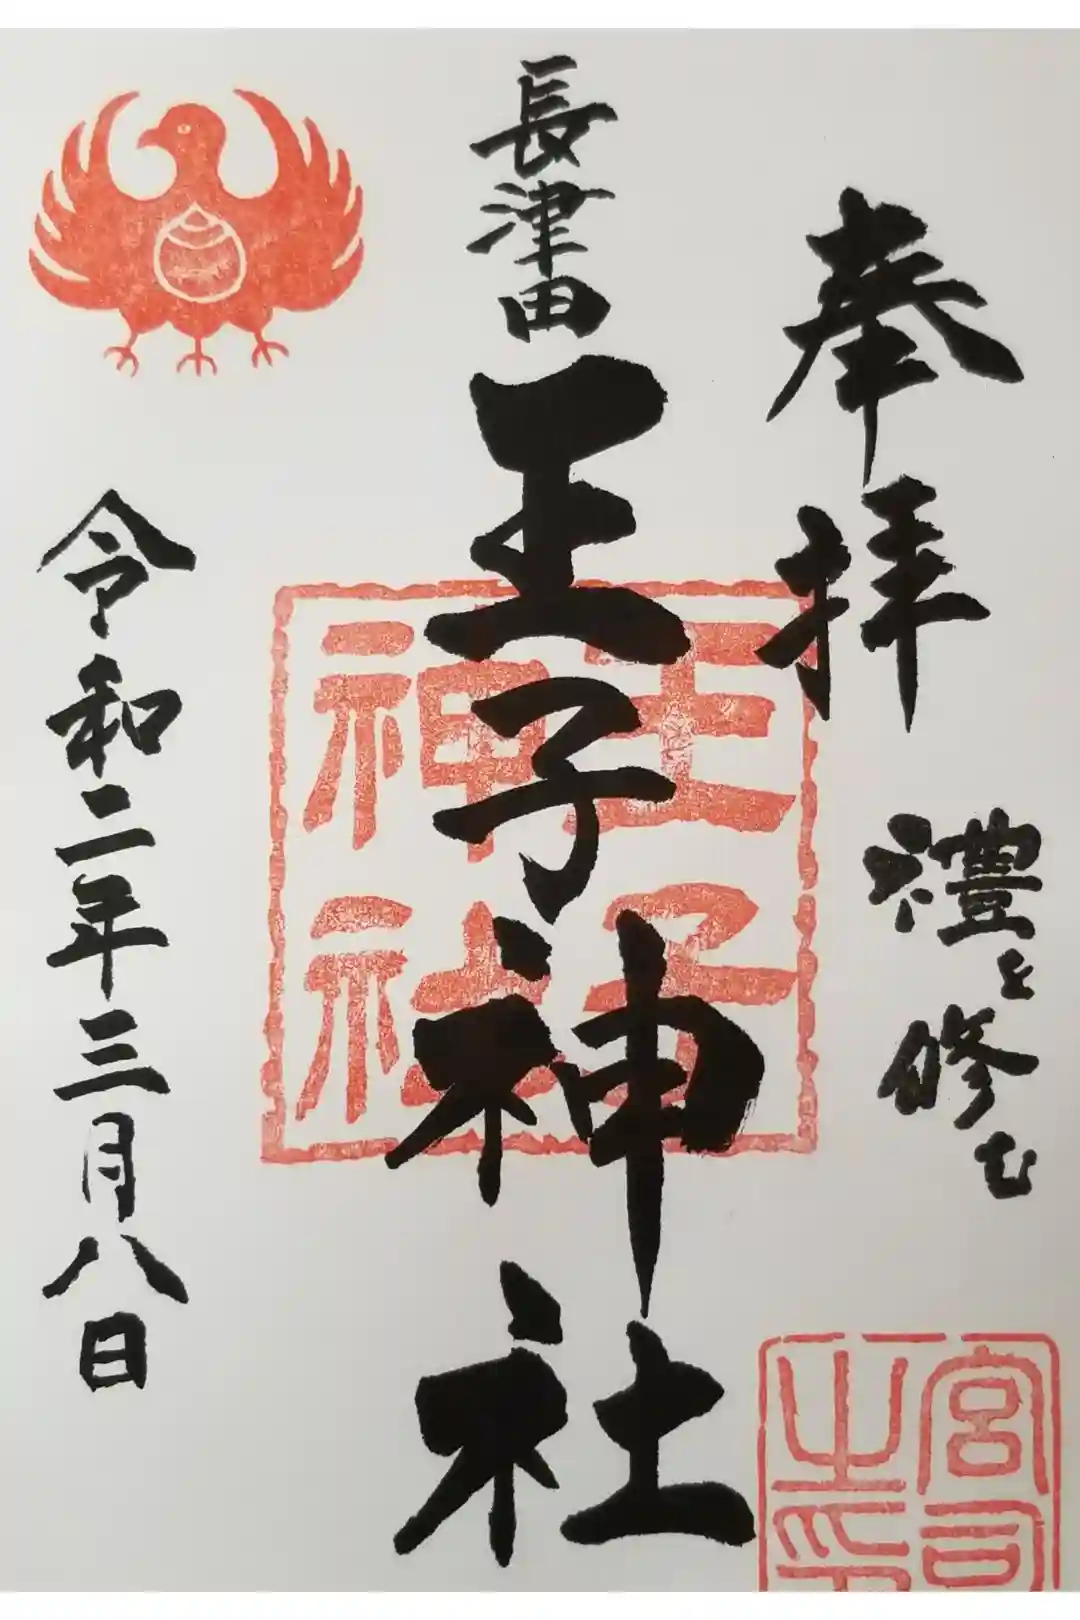 奉拝
禮を修む
長津田
王子神社
王子
神社
令和二年三月八日
宮司
之印